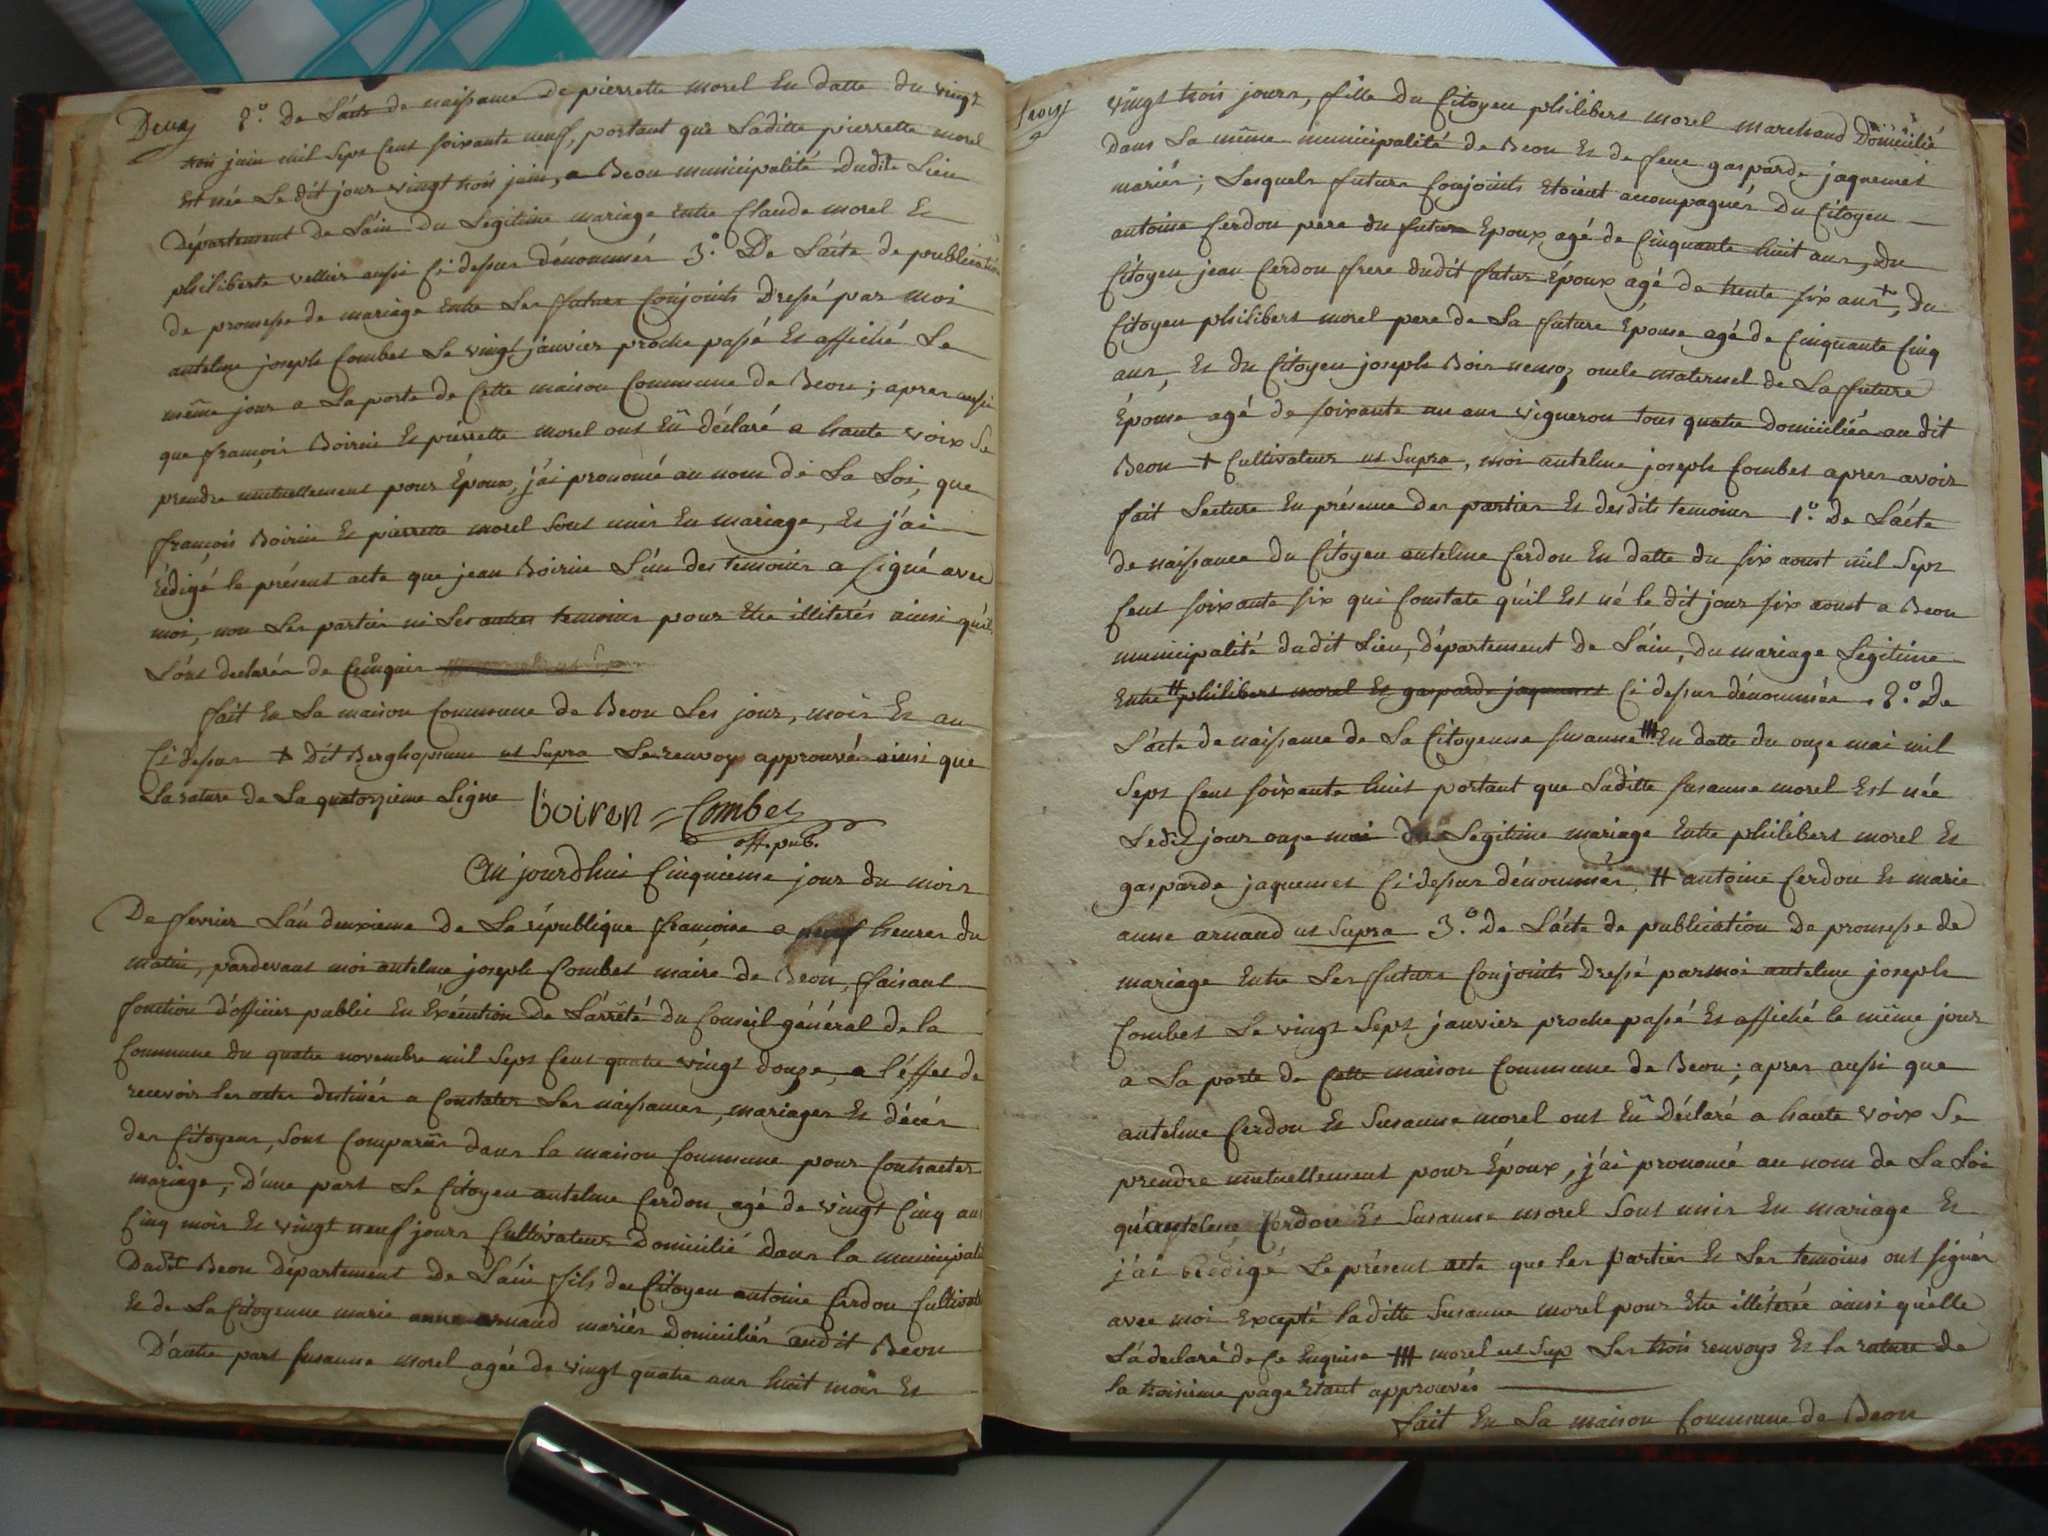 Deux
2.° De L'acte de naissance De pierrette morel En datte du vingt
trois juin mil Sept Cent soixante neuf, portant que Laditte pierrette morel
Est née Le dit jour vingt trois juin, a Beon municipalité Dudit Lieu
Département de L'ain du Légitime mariage Entre Claude morel Et
philiberte vellier aussi Ci dessus dénommés 3.° De L'acte de publication
de promesse de mariage Entre Les futurs Conjoints Dressé par moi
antelme joseph Combet Le vingt janvier proche passé Et affiché Le
même jour a La porte de Cette maison Commune de Beon; apres aussi
que françois Boirin Et pierrette morel ont Eû déclaré a haute voix Se
prendre mutuellement pour Époux, j'ai prononcé au nom de La Loi, que
françois Boirin Et pierrette morel Sont unis En mariage, Et j'ai
rédigé le présent acte que jean Boirin L'un des temoins a signé avec
moi, non Les parties ni Les autres temoins pour Etre illiterés ainsi qu'ils
L'ont declarés de Ce enquis
fait En La maison Commune de Beon Les jour, mois Et an
Ci dessus + dit Berghopsum ut Supra Le renvoy approuvé ainsi que
La rature de La quatorzieme Ligne Boiren = Combet
off. pub.
Au jourdhui Cinquieme jour du mois
De fevrier L'an deuxieme de La république françoise a neuf heures du
matin, pardevant moi antelme joseph Combet maire de Beon, faisant
fonction d'officier public En Exécution De L'arrêté du Conseil général de la
Commune du quatre novembre mil Sept Cent quatre vingt douze, a l'effet de
recevoir les actes destinés a Constater Les naissances, mariages Et décés
des Citoyens, Sont Comparûs dans la maison Commune pour Contracter
mariage; D'une part Le Citoyen antelme Cerdon agé de vingt Cinq ans
Cinq mois Et vingt neuf jours Cultivateur Domicilié Dans la municipalité
Dudit Beon Département De L'ain fils du Citoyen antoine Cerdon Cultivateur
Et de La Citoyenne marie anne arnaud mariés Domiciliés audit Beon
D'autre part susanne morel agée de vingt quatre ans huit mois Et
trois
vingt trois jours, fille Du Citoyen philibert morel marchand Domicilié
dans La même municipalité de Beon Et de feue gasparde jaquemet
mariés; Lesquels futurs Conjoints Etoient accompagnés Du Citoyen
antoine Cerdon pere du futur Epoux agé de Cinquante huit ans, Du
Citoyen jean Cerdon frere dudit futur Époux agé de trente six ans +, Du
Citoyen philibert morel pere de La future Épouse agé de Cinquante Cinq
ans, Et Du Citoyen joseph Bois nemoz oncle maternel de La future
Épouse agé de soixante un ans vigneron tous quatre domiciliés audit
Beon + Cultivateur ut Supra, moi antelme joseph Combet apres avoir
fait Lecture En présence des parties Et desdits temoins 1.° de L'acte
de naissance du Citoyen antelme Cerdon En datte du six aoust mil Sept
Cent soixante six qui Constate qu'il Est né le dit jour six aoust a Beon
municipalité dudit Lieu, Département de L'ain, Du mariage Légitime
Entre ++ philibert morel Et gasparde jaquemet Ci dessus dénommés . 2.° De
L'acte de naissance de La Citoyenne susanne +++ En datte du onze mai mil
Sept Cent soixante huit portant que Laditte susanne morel Est née
Ledit jour onze mai du Légitime mariage Entre philibert morel Et
gasparde jaquemet Ci dessus dénommés, ++ antoine Cerdon Et marie
anne arnaud ut Supra 3.° De L'acte de publication De promesse de
mariage Entre Les futurs Conjoints Dressé par moi antelme joseph
Combet Le vingt Sept janvier proche passé Et affiché le même jour
a La porte de Cette maison Commune de Beon; apres aussi que
antelme Cerdon Et Susanne morel ont Eû Déclaré a haute voix Se
prendre mutuellement pour Époux, j'ai prononcé au nom de La Loi
qu'antelme Cerdon Et Susanne morel Sont unis En mariage Et
j'ai rédigé Le présent acte que les parties Et Les temoins ont signés
avec moi Excepté laditte Susanne morel pour Etre illiterée ainsi qu'elle
L'a declaré de Ce Enquise +++ morel ut Sup Les trois renvoys Et la rature de
la troisieme page Etant approuvés
fait En La maison Commune de Beon